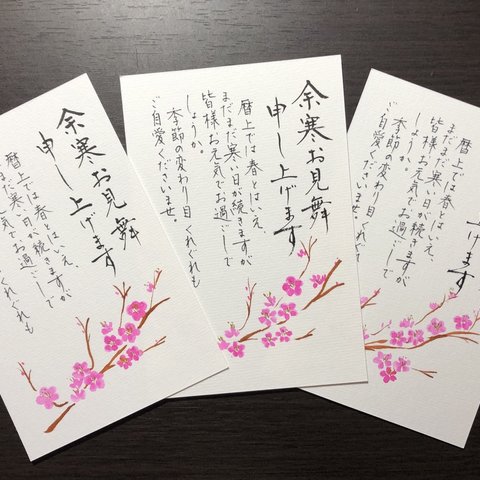 余寒お見舞
申し上げます
暦上では春とはいえ、
まだまだ寒い日が続きますが
皆様お元気でお過ごしで
しょうか。
季節の変わり目くれぐれも
ご自愛くださいませ。
余寒お見舞
申し上げます
暦上では春とはいえ、
まだまだ寒い日が続きますが
お元気でお過ごしで
くれぐれも
上げます
暦上では春とはいえ、
まだまだ寒い日が続きますが
皆様お元気でお過ごしで
しょうか。
季節の変わり目くれぐれ
ご自愛くださいませ。